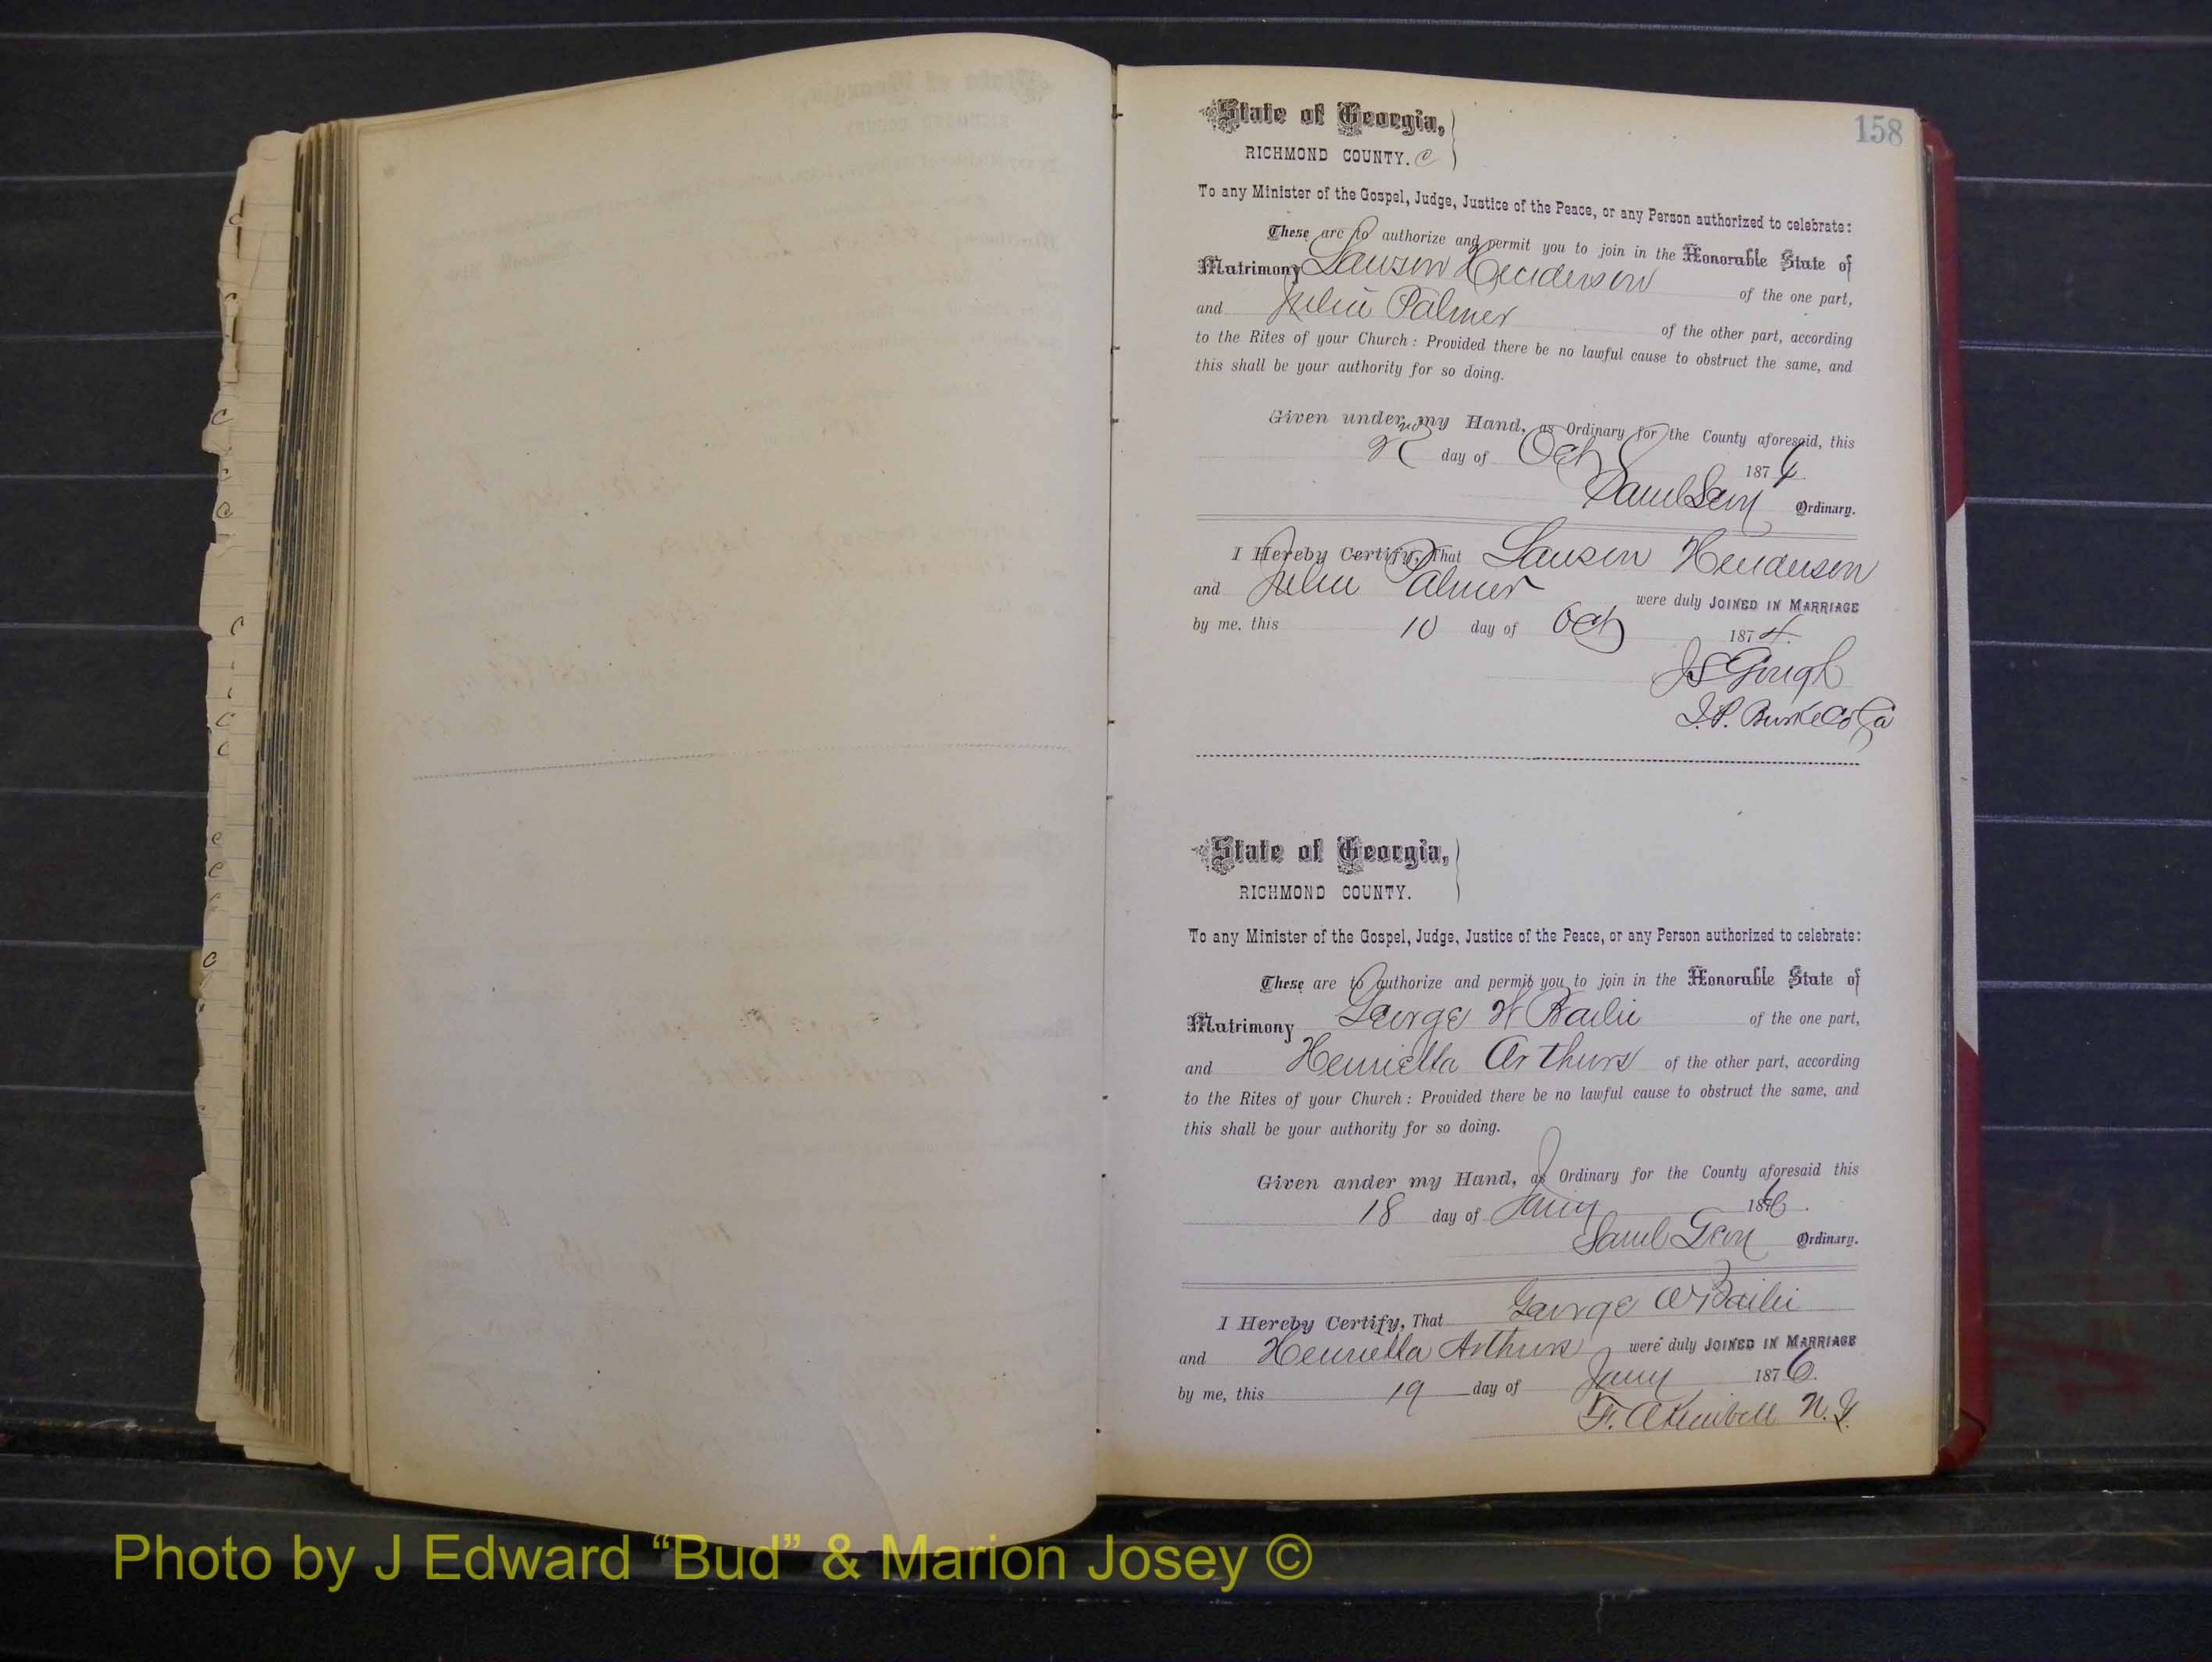 158
State of Georgia,
RICHMOND COUNTY. C
To any Minister of the Gospel, Judge, Justice of the Peace, or any Person authorized to celebrate:
These are to authorize and permit you to join in the Honorable State of
Matrimony Lawson Henderson of the one part,
and Julia Palmer of the other part, according
to the Rites of your Church: Provided there be no lawful cause to obstruct the same, and
this shall be your authority for so doing.
Given under my Hand, as Ordinary for the County aforesaid, this
2 day of Oct 1874
Saml Levy Ordinary.
I Hereby Certify, That Lawson Henderson
and Julia Palmer were duly JOINED IN MARRIAGE
by me, this 10 day of Oct 1874.
J S Gough
J.P. Burke Co Ga
State of Georgia,
RICHMOND COUNTY.
To any Minister of the Gospel, Judge, Justice of the Peace, or any Person authorized to celebrate:
These are to authorize and permit you to join in the Honorable State of
Matrimony George W Bailie of the one part,
and Henrietta Arthurs of the other part, according
to the Rites of your Church: Provided there be no lawful cause to obstruct the same, and
this shall be your authority for so doing.
Given under my Hand, as Ordinary for the County aforesaid this
18 day of Jany 1876.
Saml Levy Ordinary.
I Hereby Certify, That George W Bailie
and Henrietta Arthurs were duly JOINED IN MARRIAGE
by me, this 19 day of Jany 1876.
F. A Kimbell
Photo by J Edward “Bud” & Marion Josey ©